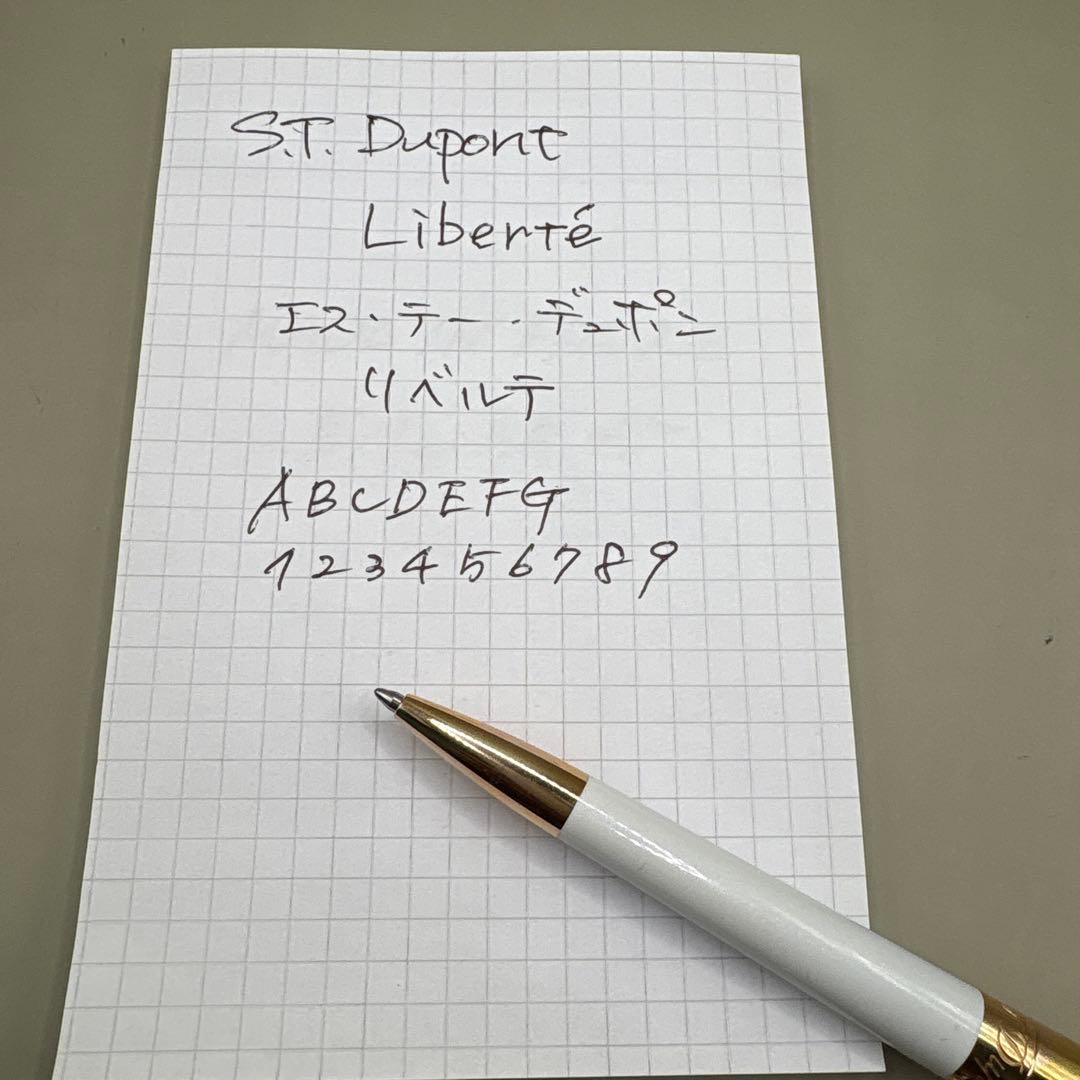 S.T. Dupont
Liberté
エス・テー・デュポン
リベルテ
ABCDEFG
123456789